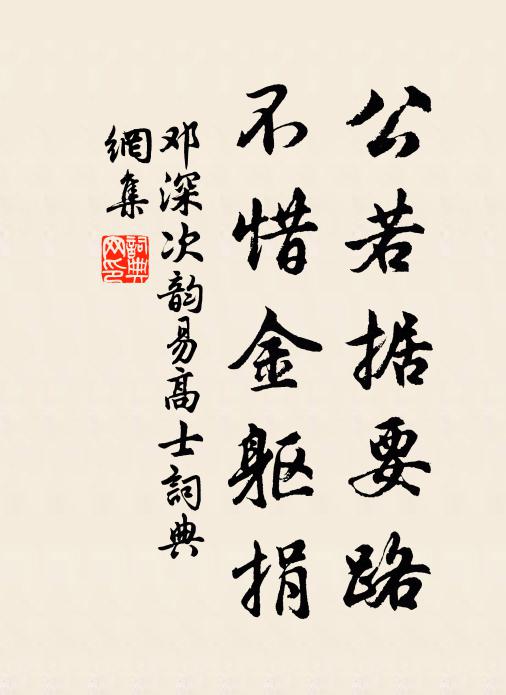 公若据要路
不惜金躯捐
邓深次韵易高士词典
網集
詞典
网印